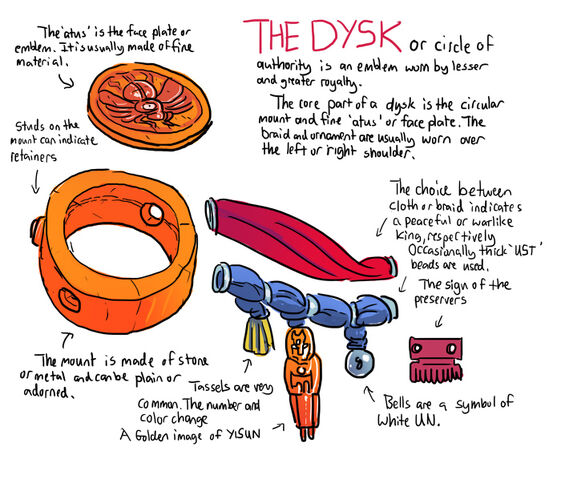 The 'atus' is the face plate or
emblem. It is usually made of fine
material.
THE DYSK or circle of
authority is an emblem worn by lesser
and greater royalty.
The core part of a dysk is the circular
mount and fine 'atus' or face plate. The
braid and ornament are usually worn over
the left or right shoulder.
Studs on the
mount can indicate
retainers
The choice between
cloth or braid indicates
a peaceful or warlike
king, respectively
Occasionally thick 'UST'
beads are used.
The sign of the
preservers
The mount is made of stone
or metal and can be plain or
adorned.
Tassels are very
common. The number and
color change
A Golden image of YISUN
Bells are a symbol of
White UN.